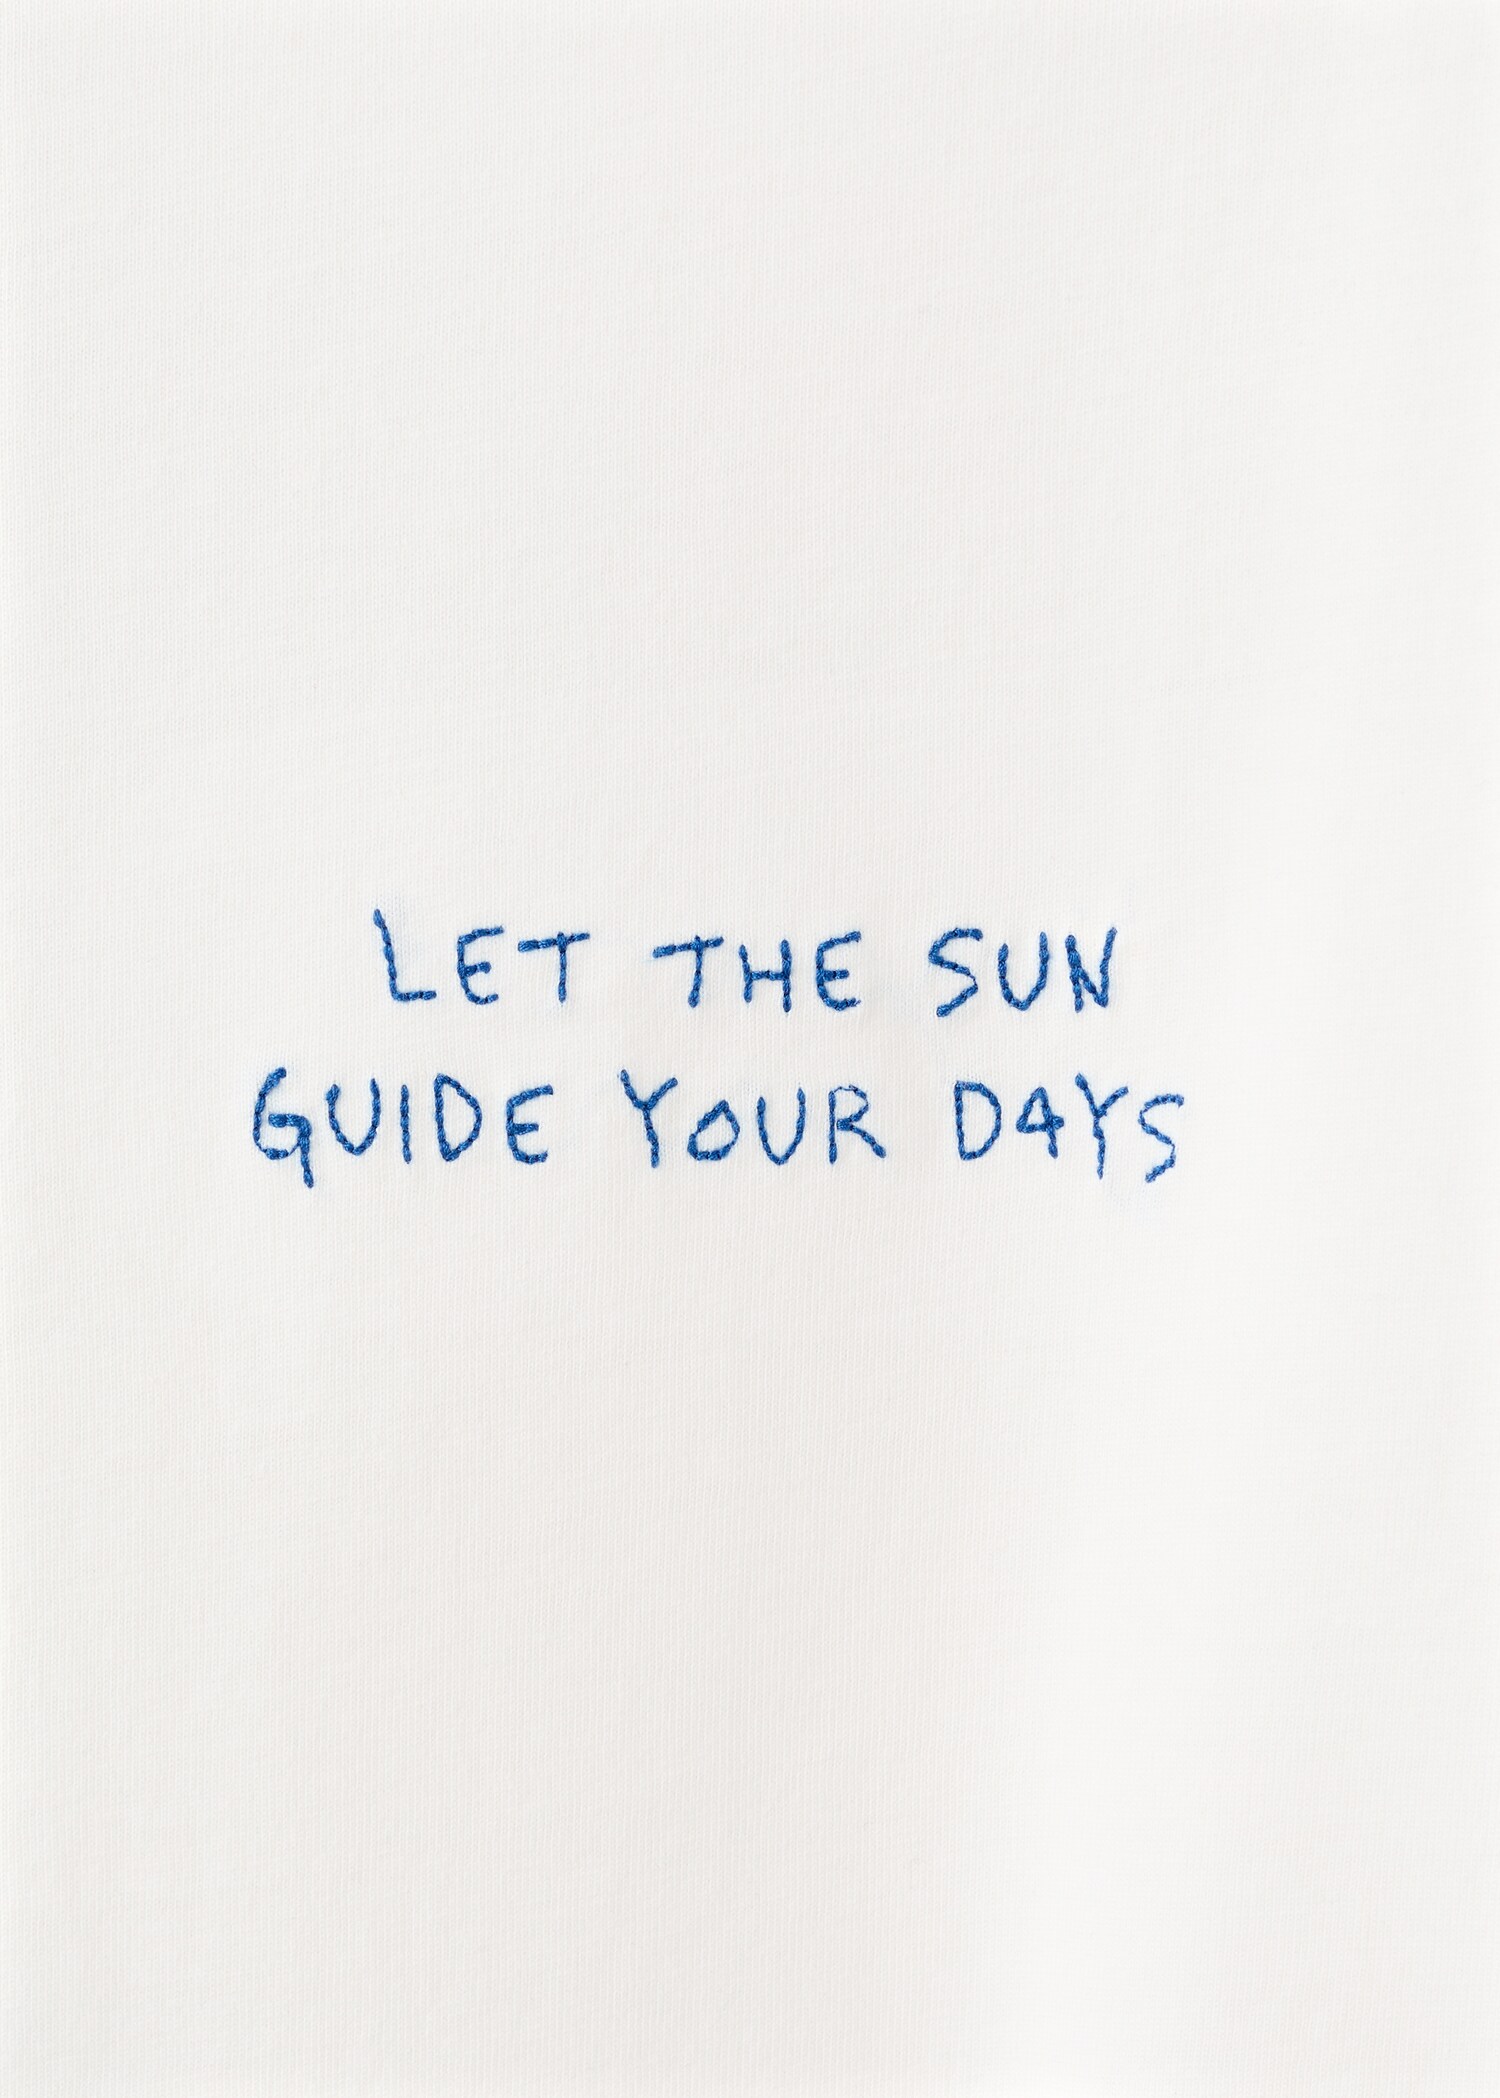 LET THE SUN
GUIDE YOUR DAYS